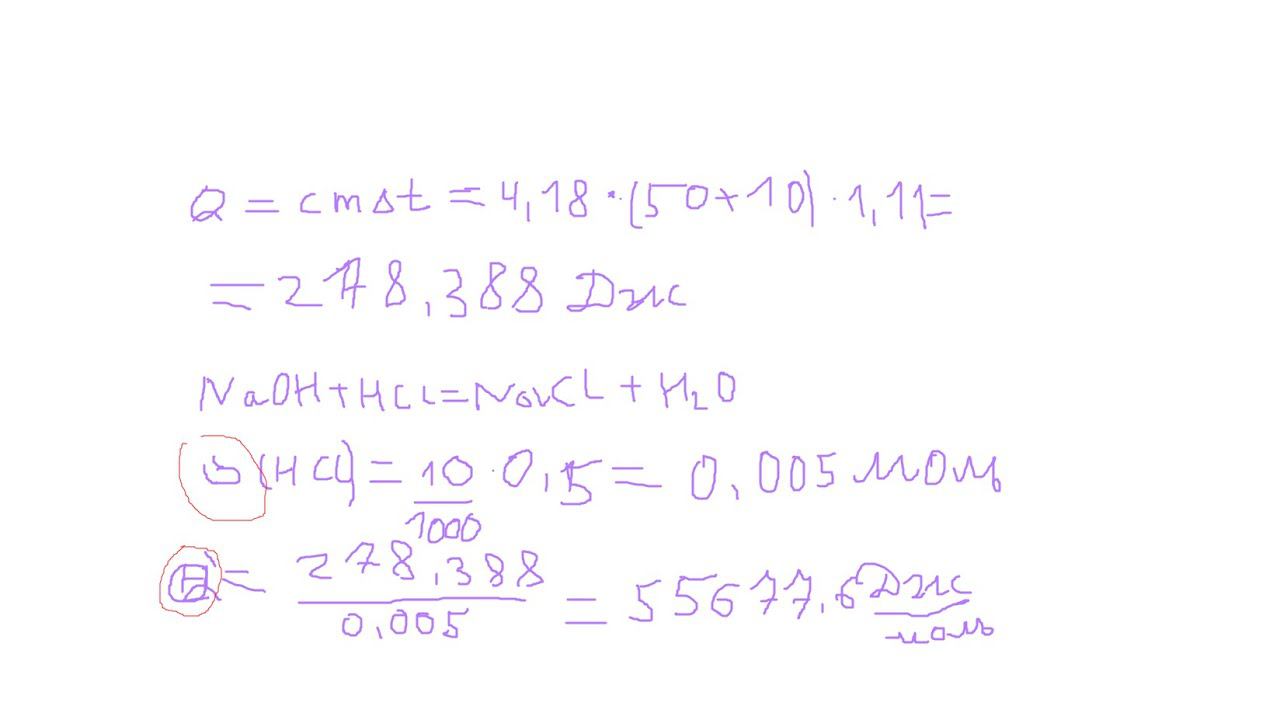 Q = cmΔt = 4,18 · (50+10) · 1,11=
= 278,388 Дж
NaOH+HCl=NaCl + H2O
(HCl) = 10/1000 · 0,5 = 0,005 моль
= 278,388/0,005 = 55677,6 Дж/моль